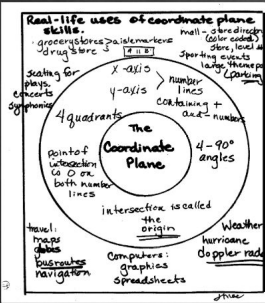 Real-life uses of coordinate plane
skills.
mall - store direct
(color coded)
store, level #
· grocery stores > aisle markers
· drug store
4 11 8
sporting events
large theme p
(parking
seating for
plays,
concerts
symphonics
x-axis
y-axis
> number
lines
containing +
and - numbers
4 quadrants
The
Coordinate
Plane
4 - 90°
angles
point of
intersection
is 0 on
both number
lines
intersection is called
the
origin
travel:
maps
globes
bus routes
navigation
computers:
graphics
spreadsheets
Weather
hurricane
doppler rada